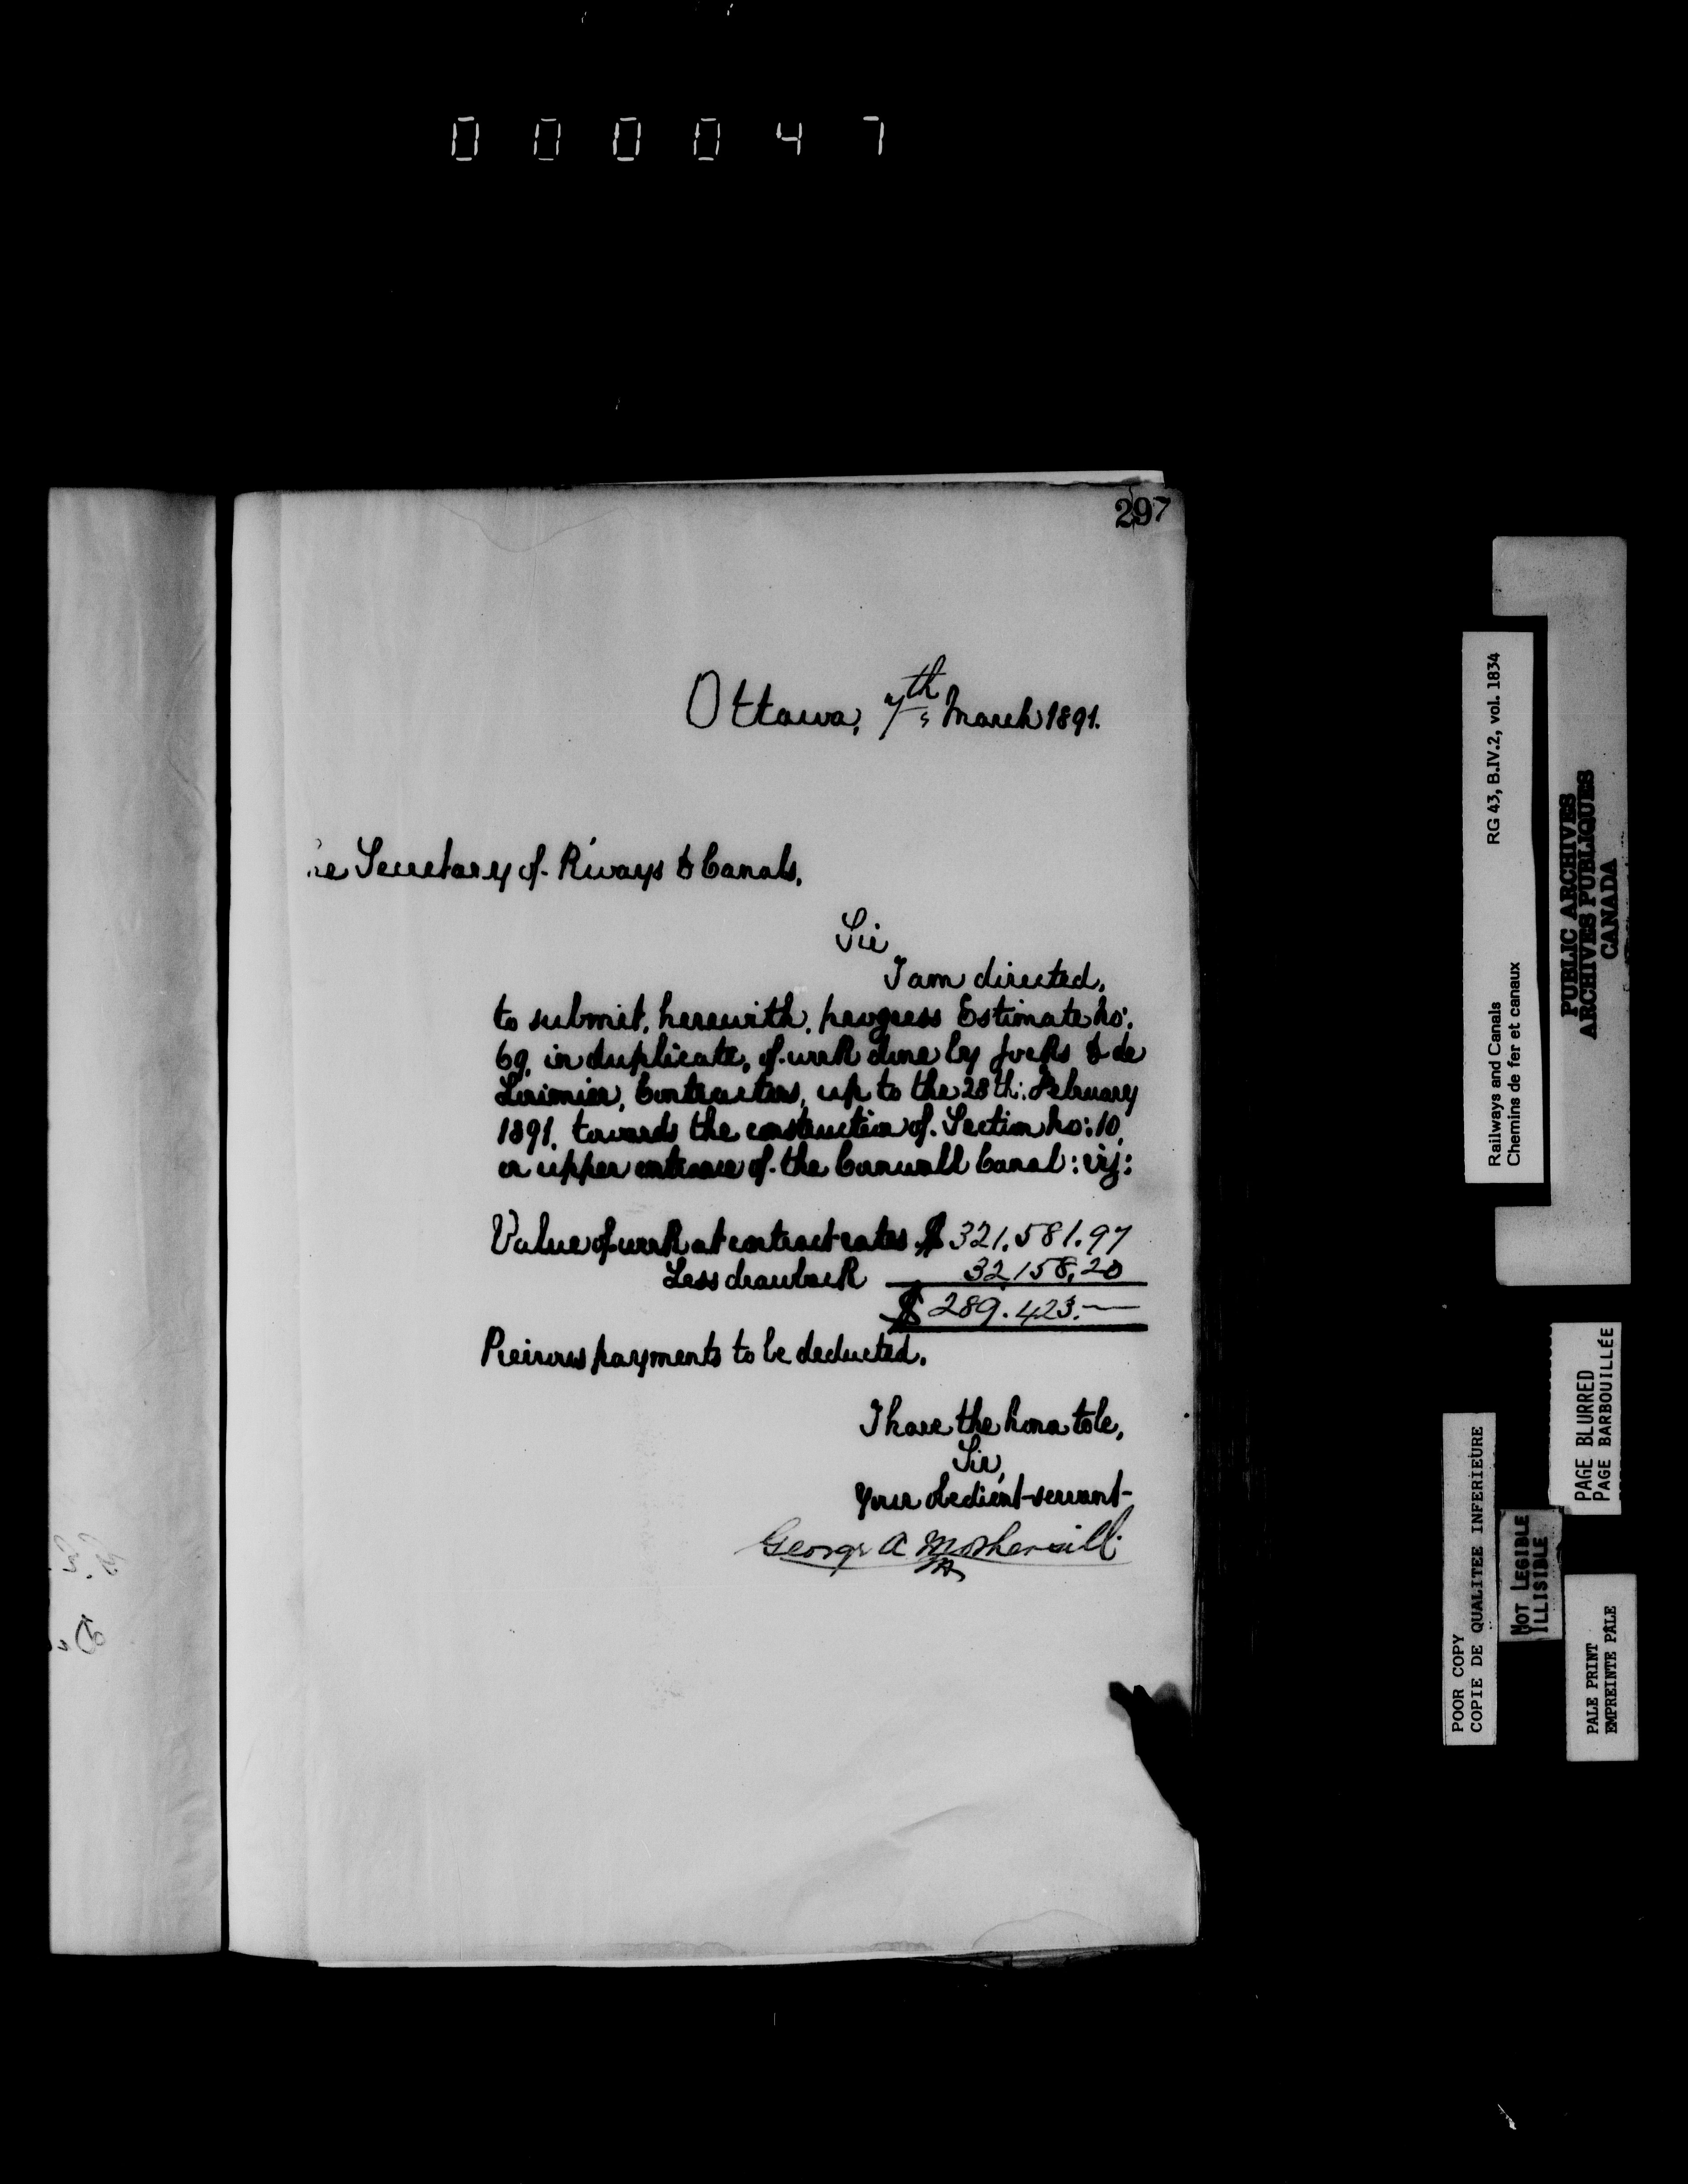 000047
297
Ottawa, 7th March 1891.
Secretary of R'ways & Canals,
Sir
I am directed,
to submit, herewith, progress Estimate No:
69, in duplicate, of work done by Jocks & de
Lorimier, Contractors, up to the 28th: February
1891, towards the construction of Section No: 10,
or upper entrance of the Cornwall Canal: viz:
Value of work at contract rates $ 321,581.97
Less drawback 32,158,20
$ 289.423.—
Previous payments to be deducted.
I have the honor to be,
Sir,
Your obedient servant
George A Mothersill
Railways and Canals RG 43, B.IV.2, vol. 1834
Chemins de fer et canaux
PUBLIC ARCHIVES
ARCHIVES PUBLIQUES
CANADA
POOR COPY
COPIE DE QUALITEE INFERIEURE
NOT LEGIBLE
ILLISIBLE
PAGE BLURRED
PAGE BARBOUILLÉE
PALE PRINT
EMPREINTE PALE